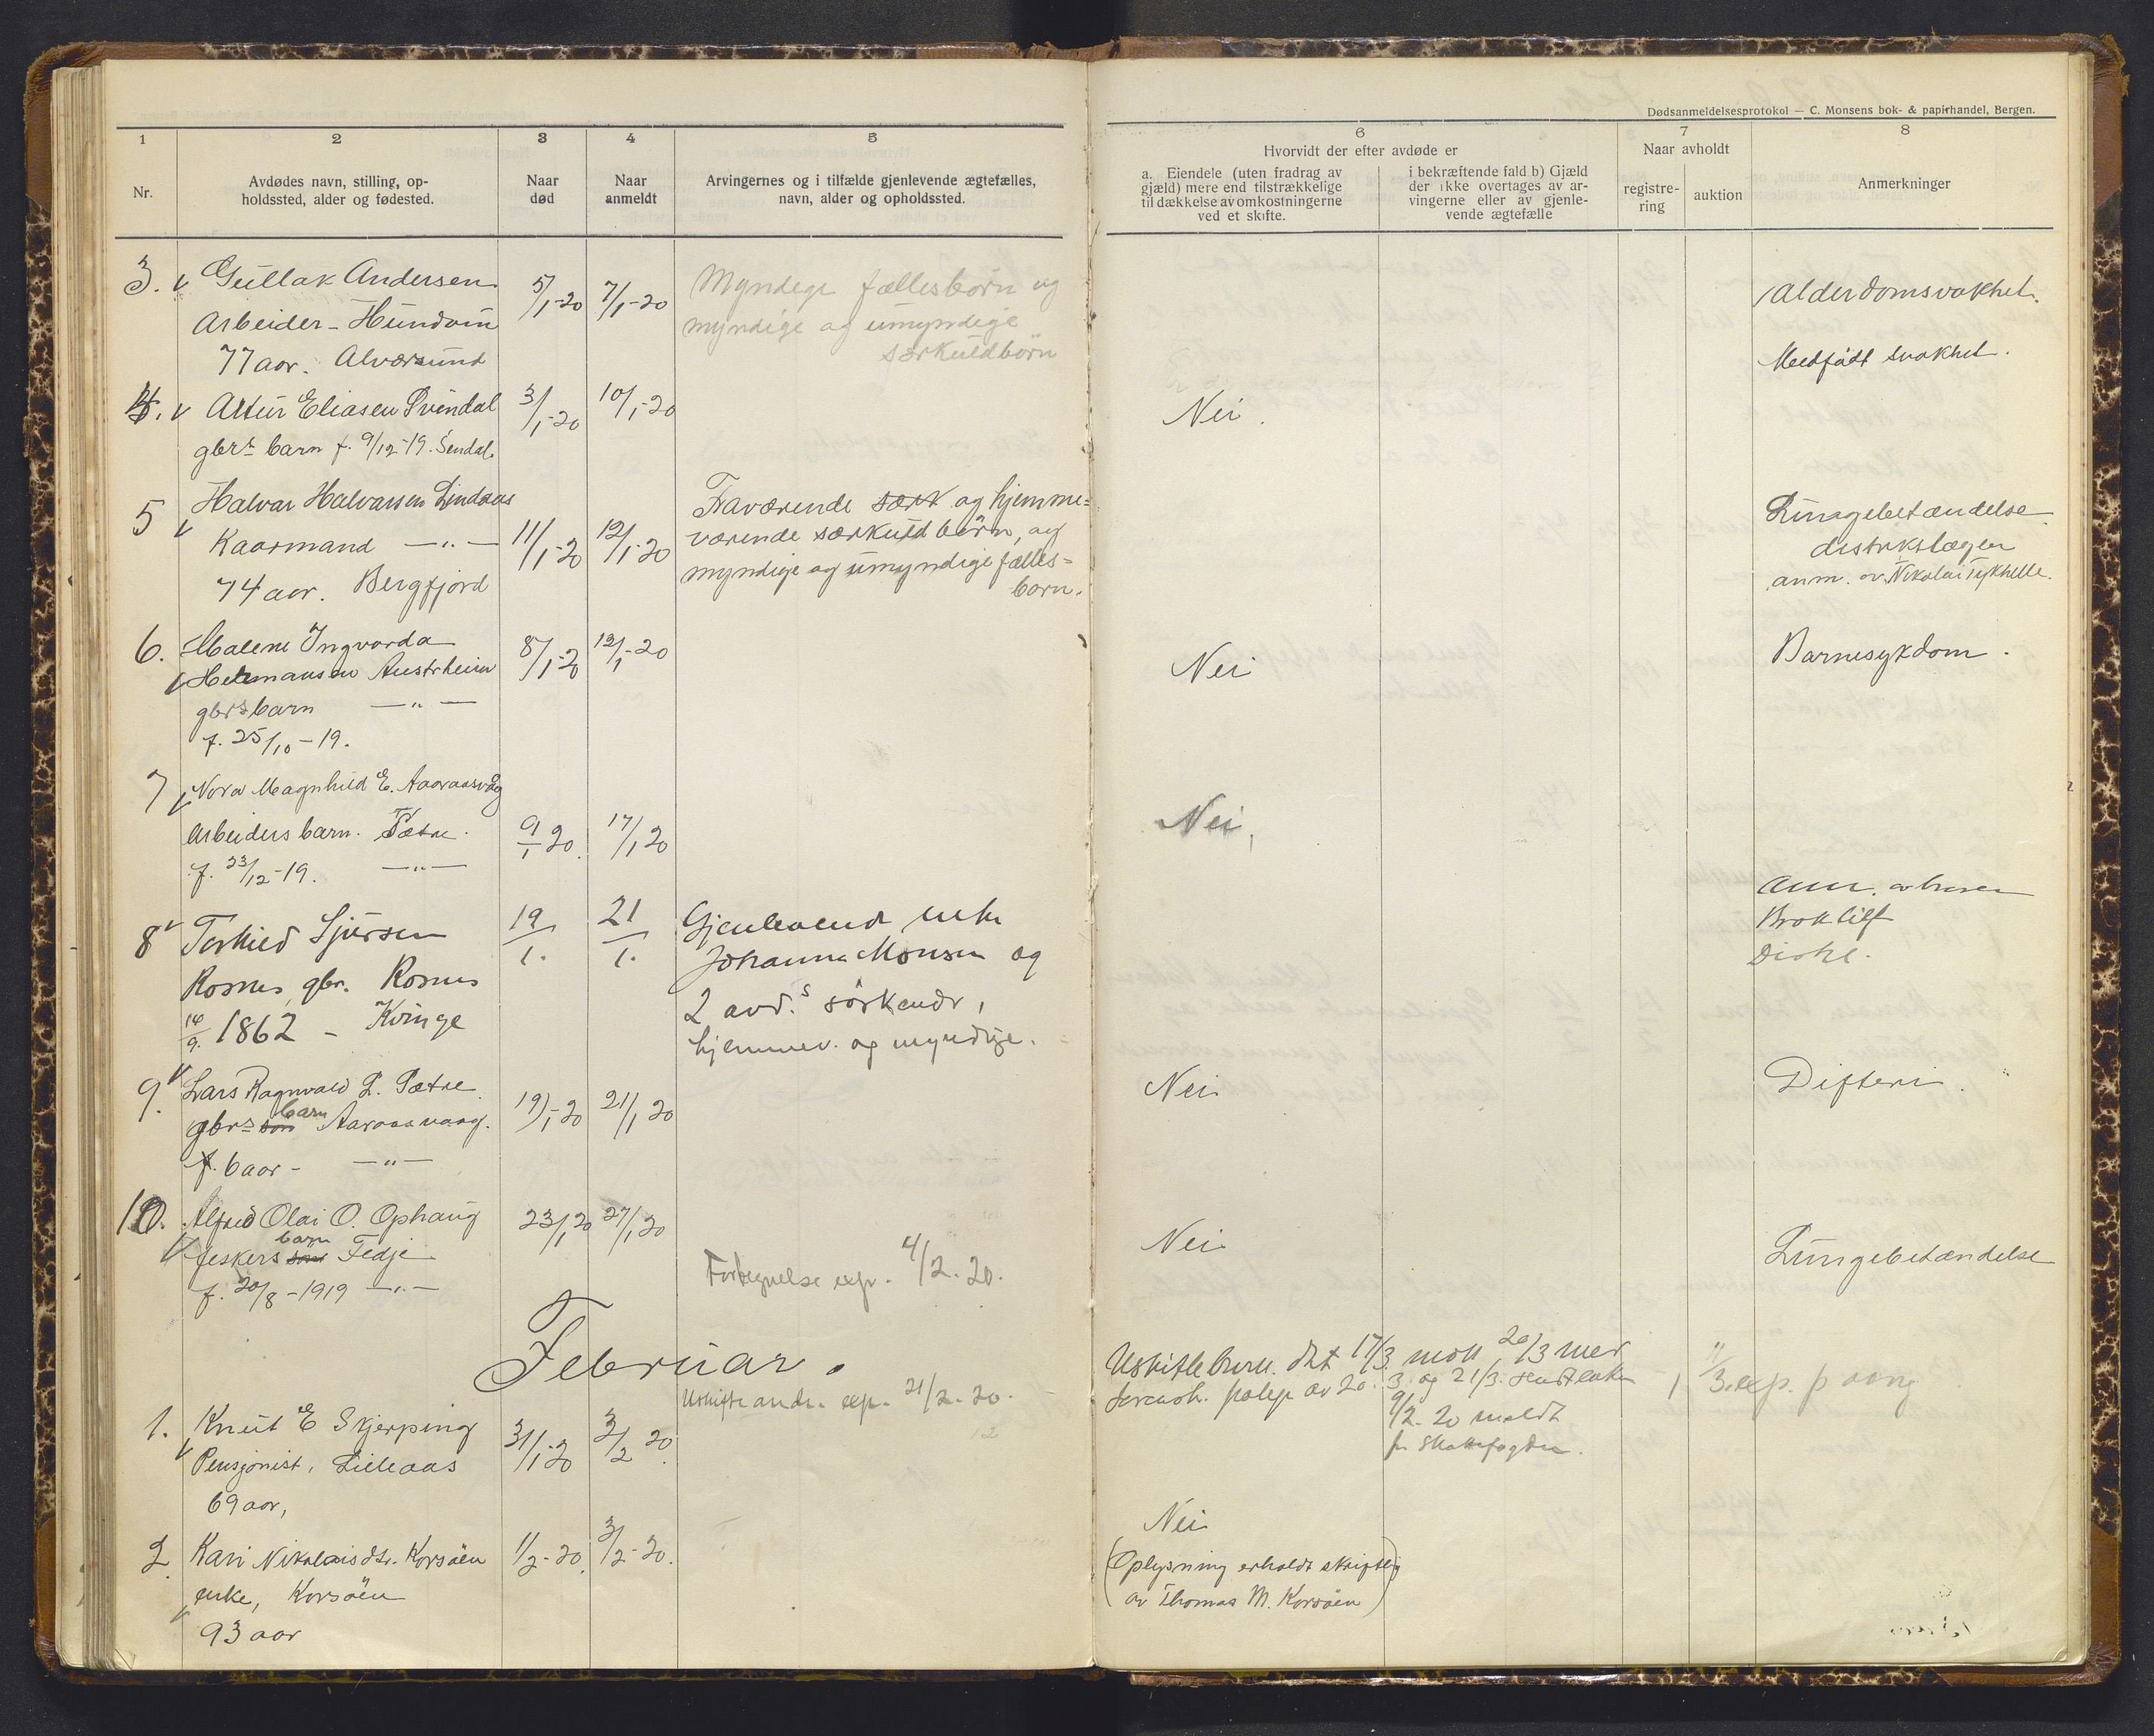 Dødsanmeldelsesprotokol — C. Monsens bok- & papirhandel, Bergen.
1 2 3 4 5
Nr.
Avdødes navn, stilling, op-
holdssted, alder og fødested.
Naar
død
Naar
anmeldt
Arvingernes og i tilfælde gjenlevende ægtefælles,
navn, alder og opholdssted.
6 7 8
Hvorvidt der efter avdøde er
a. Eiendele (uten fradrag av
gjæld) mere end tilstrækkelige
til dækkelse av omkostningerne
ved et skifte.
i bekræftende fald b) Gjæld
der ikke overtages av ar-
vingerne eller av gjenle-
vende ægtefælle
Naar avholdt
registre-
ring
auktion
Anmerkninger
3. Gullak Andersen 5/1-20 7/1-20 Myndige fællesbørn og
Arbeider - Hundvin myndige og umyndige
77 aar. Alversund særkuldbørn
Alderdomsvakhet.
Medfødt svakhet.
4. Artur Eliasen 3/1-20 10/1-20 Nei.
gbrs barn f. 9/12-19.
5 Halvar Halvarsen Lindaas 11/1-20 12/1-20 Fraværende særk og hjemme=
Kaarmand —"— værende særkuld børn, og
74 aar. Bergfjord myndige og umyndige fælles=
børn.
Lungebetændelse
anm. av Nikolai
6. Malene Ingvarda 8/1-20 12/1-20 Nei Barnesykdom.
Hermansen Austrheim
gbrs barn —"—
f. 25/10-19.
7 Nora Magnhild E. Aaraasvåg
Arbeiders barn. Sætre. 9/1 20. 17/1 20 Nei,
f. 23/12-19. —"—
8 Torkild Sjursen 19/1. 21/1. Gjenlevende enke
Rosnes, gbr. Rosnes Johanna Monsen og
14/9. 1862 - Kvinge 2 avd.s søskende,
hjemmev. og myndige.
9. Lars Ragnvald L. Sætre 19/1-20 21/1 20 Nei Difteri.
gbrs son barn Aaraasvaag.
f. 6 aar - —"—
10. Alfred Olai O. Ophaug 23/1 20 27/1 20 Nei Lungebetændelse
fiskers son barn Fedje
f. 20/8-1919 —"—
Fortegnelse exp. 4/2. 20.
Februar.
Uskifte andr. exp. 21/2-20.
1. Knut E Skjerping 31/1-20 3/2 20.
Pensjonist, Lilleaas
69 aar,
9/2-20 meldt
fr Skattefogden.
2. Kari Nikolaisdtr. Korsøen 1/2-20. 3/2-20. Nei
enke, Korsøen (Oplysning erholdt skriftlig
93 aar av Thomas M. Korsøen)